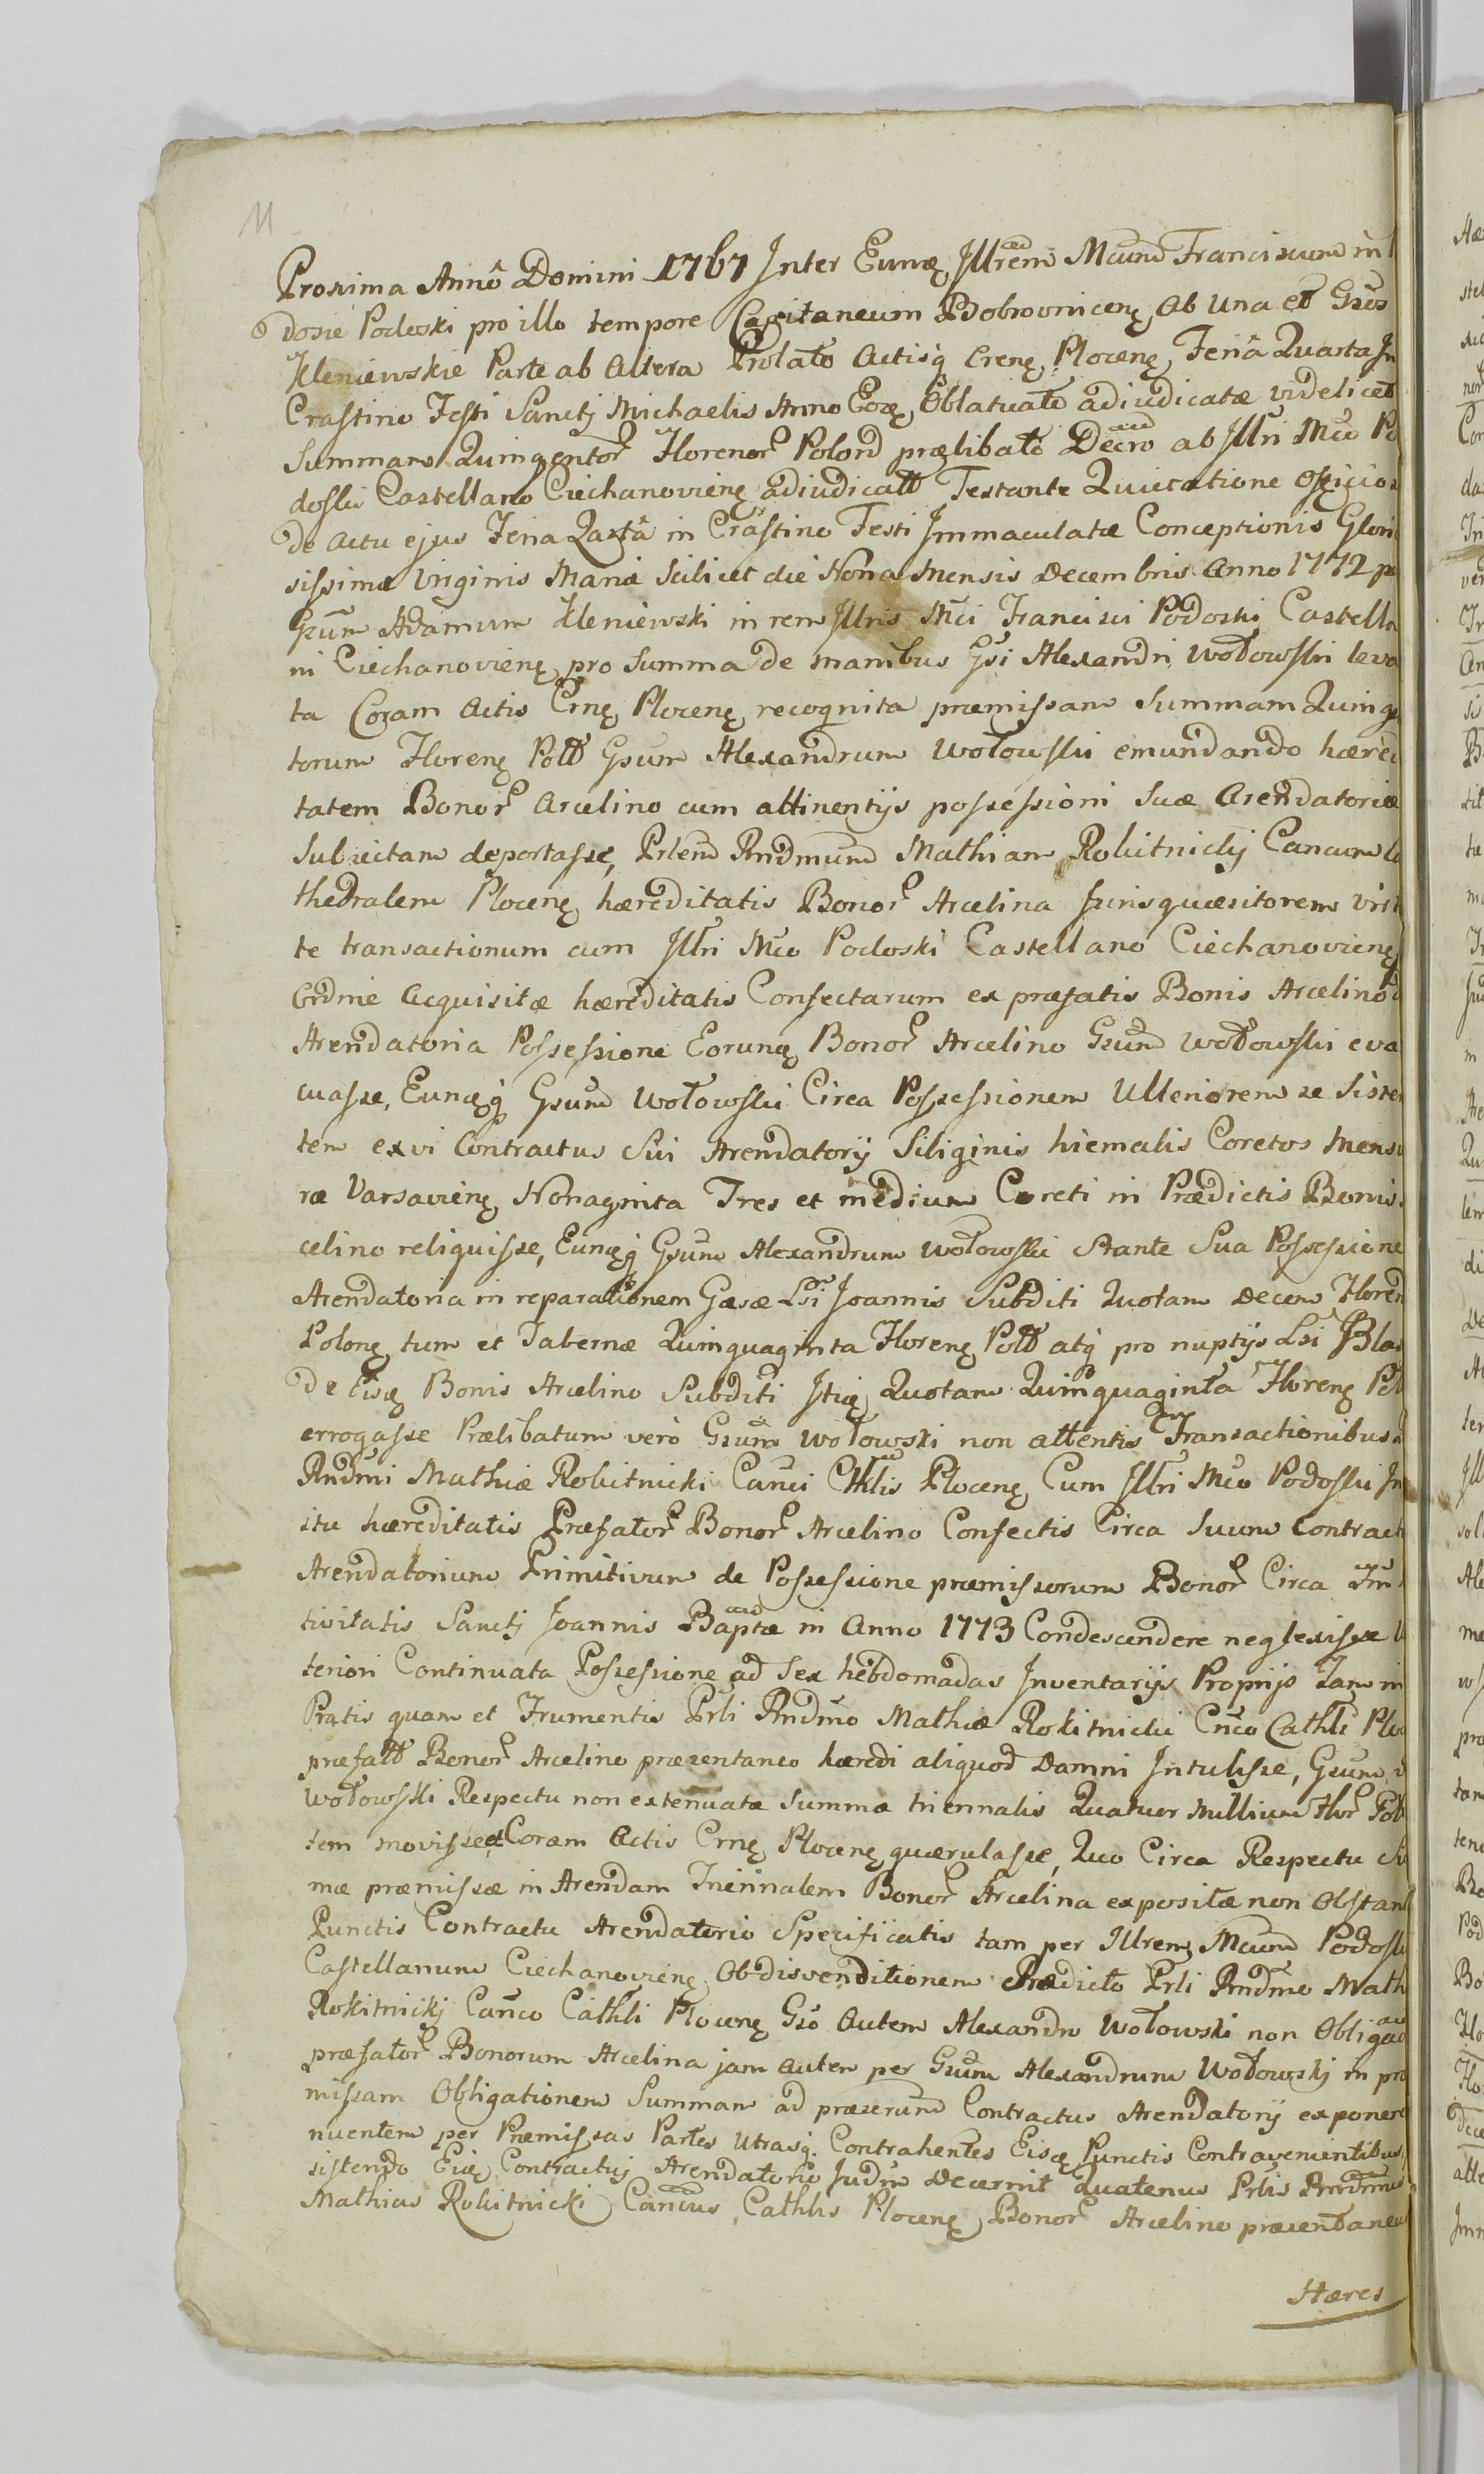 11
Proxima Annô Domini 1767 Inter Eunḑ Jllrem Mcum Franciscum in
Dosie Podoski pro illo tempore Capitaneum Dobrovnicenę, ab una et Gsos
Kleniewskie Parte ab altera Prolato actisq̃ Crenę Plocenę Feria Quarta In
Crastino Festi Sanctj Michaelis Anno Eoę Oblatuato adiudicatæ videlicet
Summam Quingentor Florenor Polond prælibato Decro ab Jllri Mco Po
doski Castellano Ciechanovienę adiudicatt Testante Quietatione Officiosa
De actu ejus Feria Qartâ in Crastino Festi Immaculatæ Conceptionis Glorio
sissimæ Virginis Mariæ Scilicet die Nona Mensis Decembris Anno 1772 pe
Gsum Adamum Kleniewski in rem Jllris Mci Francisci Podoski Castella
ni Ciechanovienę pro Summa de manibus Gsi Alexandri Wołowski leva
ta Coram Actis Crnę Plocenę recognita præmissam Summam Quinge
torum Florenę Poll Gsum Alexandrum Wołowski emundando hæredi
tatem Bonor Arcelino cum attinentijs possessioni Suæ Arendatoriæ
Subiectam deportasse, Prlem Rndmum Mathiam Rokitnickj Canonum Ca
thedralem Plocenę hæreditatis Bonor Arcelina Jurisquæsitorem vir
te transactionum cum Jllri Mco Podoski Castellano Ciechanovienę
Ordine Acquisitæ hæreditatis Confectarum ex præfatis Bonis Arcelino
Arendatoria Possessione Eorunę Bonor Arcelino Gsum Wołowski eva
cuasse, Eunęq̃ Gsum Wołowski Circa Possessionem Ulteriorem se Siste
tem ex vi Contractus Sui Arendatorij Siliginis hiemalis Coretos Mensu
ræ Varsavienę Nonaginta Tres et medium Coreti in Prædictis Bonis
celino reliquisse, Eunęq̃ Gsum Alexandrum Wołowski Stante Sua Possessione
Arendatoria in reparationem Casæ Lsi Joannis Subditi Quotam Decem Floren
Polonę tum et Tabernæ Quinquaginta Florenę Poll atq̃ pro nuptijs Lsi Blas
De Eisę Bonis Arcelino Subditi Itię Quotam Quinquaginta Florenę Pol
errogasse Prælibatum verò Gsum Wołowski non attentis Transactionibus
Rndmi Mathiæ Rokitnicki Canci Cthlis Plocenę Cum Jllri Mco Podoski In
itu hæreditatis Præfator Bonor Arcelino Confectis Circa Suum Contract
Arendatorium Primitivum de Possessione præmissorum Bonor Circa
tivitatis Sanctj Joannis Baptæ in Anno 1773 Condescendere neglexisse U
teriori Continuata Possessione ad Sex hebdomadas Inventarijs Proprijs Tam in
Pratis quam et Frumentis Prli Rndmo Mathiæ Rokitnicki Cnco Cathli Ploc
præfatt Bonor Arcelino præsentaneo hæredi aliquod Damni Intulisse, Gsum
Wołowski Respectu non extenuatæ Summæ triennalis Quatuor Millium Flor Poll
tem movisse et Coram Actis Crnę Plocenę quærulasse, Quo Circa Respectu Su
mæ præmissæ in Arendam Triennalem Bonor Arcelina expositæ non Obstan
Punctis Contractu Arendatorio Specificatis tam per Illrem Mcum Podoski
Castellanum Ciechanovienę Ob disvenditionem Prædicto Prli Rndmo Math
Rokitnickj Canco Cathli Plocenę Gso Autem Alexandro Wołowski non Obligad
præfator Bonorum Arcelina jam autem per Gsum Alexandrum Wołowskj in præ
missam Obligationem Summam ad præsernd Contractus Arendatorij exponer
nuentem per Præmissas Partes Utrasq̃ Contrahentes Eisę Punctis Contravenientibus
sistendo Eię Contractuj Arendatorio Judm Decernit Quatenus Prlis Rndmus
Mathias Rokitnicki Cancus Cathlis Plocenę Bonor Arcelino præsentaneus
Hæres